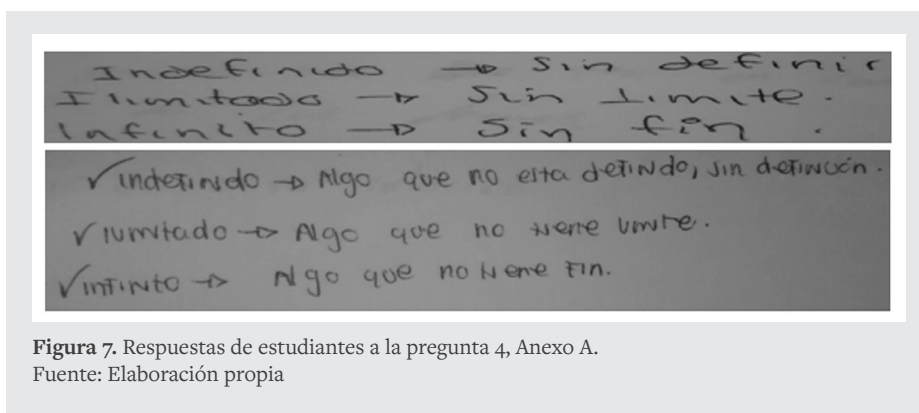 Indefinido → Sin definir
Ilimitado → Sin limite.
Infinito → Sin fin.
✓ indefinido → Algo que no esta definido, sin definición.
✓ ilimitado → Algo que no tiene limite.
✓ infinito → Algo que no tiene fin.
Figura 7. Respuestas de estudiantes a la pregunta 4, Anexo A.
Fuente: Elaboración propia